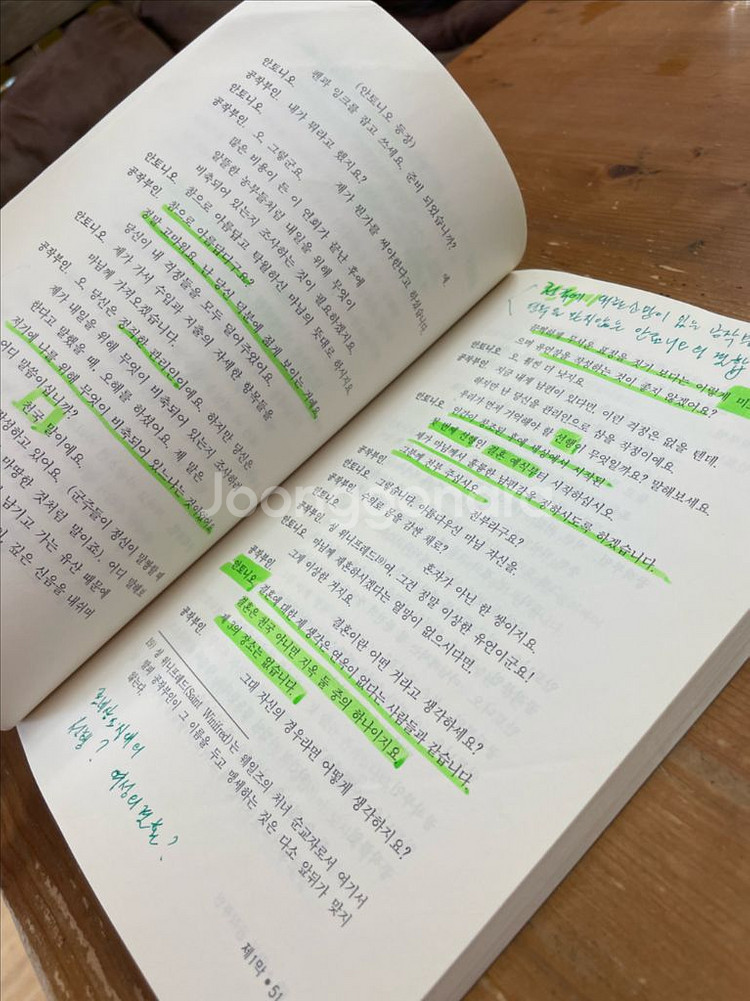 (안토니오 등장)
안토니오. 펜과 잉크를 잡고 쓰세요. 준비 되었습니까?
예.
공작부인. 내가 뭐라고 했지요?
안토니오. 제가 뭔가를 써야한다고 하셨습니다.
공작부인. 오, 그렇군요.
많은 비용이 든 이 연회가 끝난 후에
알뜰한 농부들처럼 내일을 위해 무엇이
비축되어 있는지 조사하는 것이 필요하겠지요.
안토니오. 참으로 아름답고 탁월하신 마님의 뜻대로 하시지요.
공작부인. 참으로 아름답다구요?
정말 고마워요. 난 당신 덕분에 젊게 보이는 거예요.
당신이 내 걱정들을 모두 덜어주었어요.
안토니오. 제가 가서 수입과 지출의 자세한 항목들을
마님께 가져오겠습니다.
공작부인. 오, 당신은 정직한 관리인이에요. 하지만 당신은
제가 내일을 위해 무엇이 비축되어 있는지 조사하
한다고 말했을 때, 오해를 하셨어요. 제 말은
저기에 나를 위해 무엇이 비축되어 있느냐는 것
어디 말씀이십니까?
천국 말이에요.
작성하고 있어요. (군주들이 정신이 말짱할 때
마땅한 것처럼 말이죠). 어디 말해보
남기고 가는 유산 때문에
깊은 신음을 내쉬며
으며 유언장을 작성하는 것이 좋지 않겠어요?
안토니오. 오, 훨씬 더 낫지요.
공작부인. 지금 내게 남편이 있다면, 이런 걱정은 없을 텐데.
하지만 난 당신을 관리인으로 삼을 작정이에요.
우리가 먼저 기억해야 할 선행이 무엇일까요? 말해보세요.
안토니오. 인간이 창조된 후에 세상에서 시작된
첫 번째 선행인 결혼 예식부터 시작하십시오.
제가 마님께서 훌륭한 남편감을 구하시도록 하겠습니다.
그분께 전부 주십시오.
공작부인. 전부라구요?
안토니오. 그렇습니다. 아름다우신 마님 자신을.
공작부인. 수의로 몸을 감싼 채로?
안토니오. 혼자가 아닌 한 쌍이지요.
공작부인. 성 위니프레드19)여, 그건 정말 이상한 유언이군요!
안토니오. 마님께 재혼하시겠다는 열망이 없으시다면,
그게 이상한 거지요.
공작부인. 결혼이란 어떤 거라고 생각하세요?
안토니오. 결혼에 대한 제 생각은 연옥이 없다는 사람들과 같습니다.
결혼은 천국 아니면 지옥 둘 중의 하나이지요.
제 3의 장소는 없습니다.
공작부인. 그대 자신의 경우라면 어떻게 생각하지요?
19) 성 위니프레드(Saint Winifred)는 웨일즈의 처녀 순교자로서 여기서
말피 공작부인이 그 이름을 두고 맹세하는 것은 다소 앞뒤가 맞지
않는다.
여성의 결혼?
제1막 • 51
Joonggonara